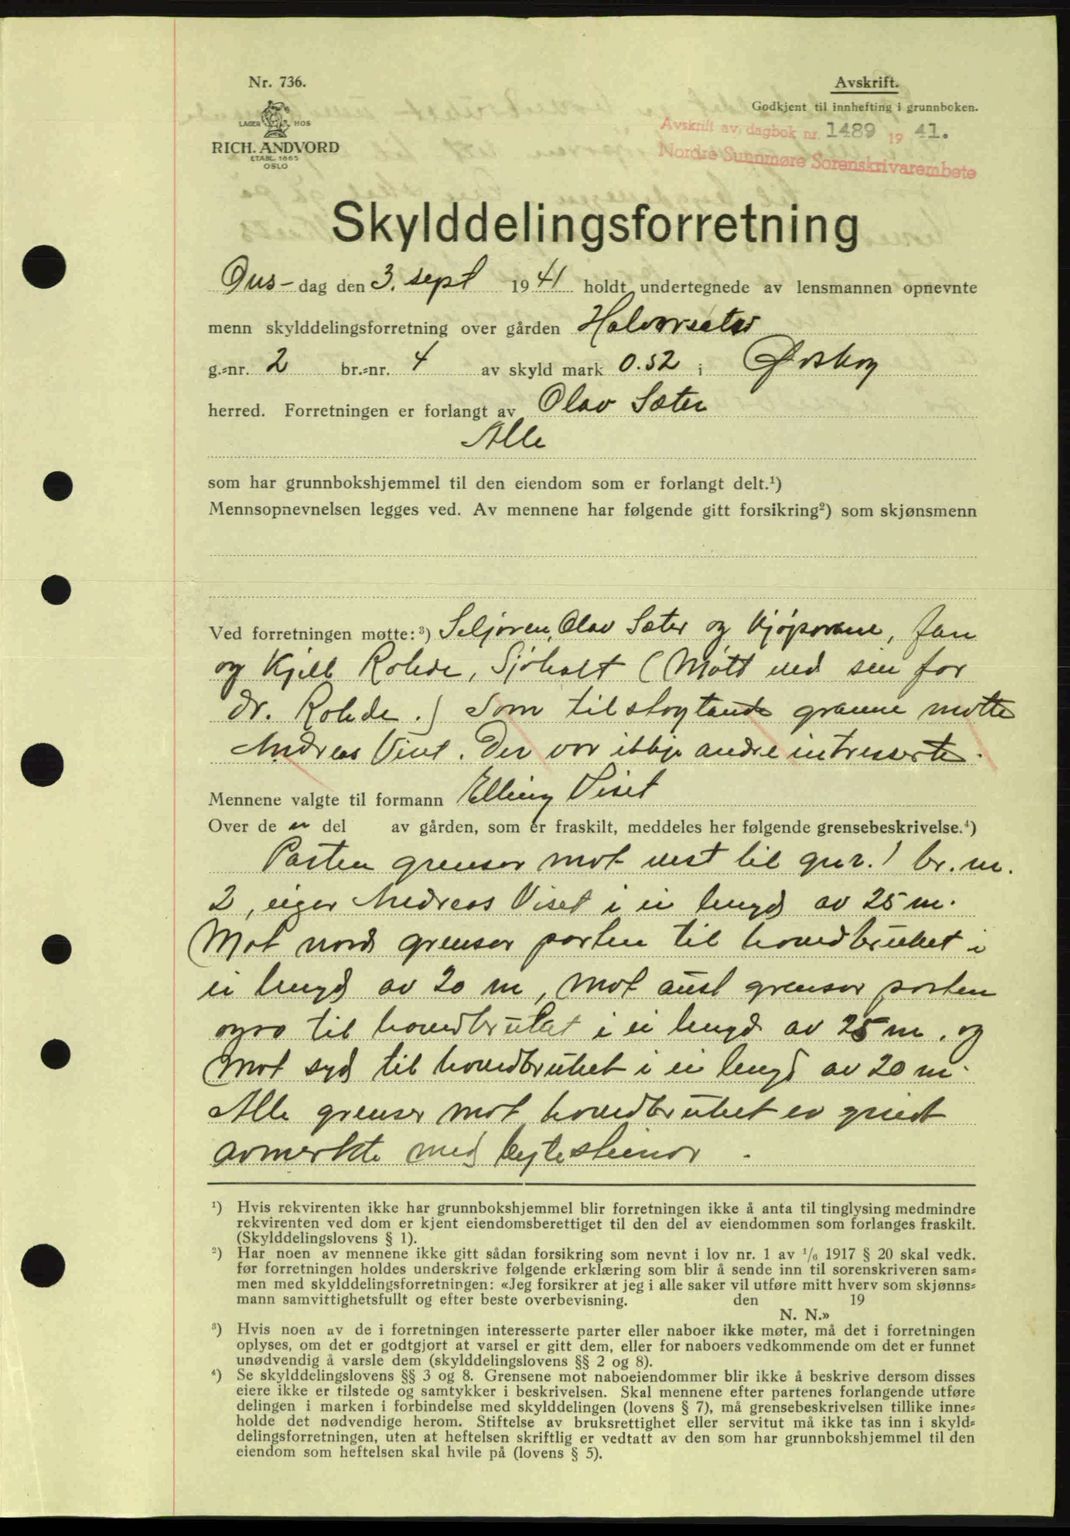 Nr. 736.
LAGER HOS
RICH. ANDVORD
ETABL. 1865
OSLO
Avskrift.
Godkjent til innhefting i grunnboken.
Avskrift av dagbok nr. 1489 19 41.
Nordre Sunnmøre Sorenskrivarembete
Skylddelingsforretning
Ons-dag den 3. sept 1941 holdt undertegnede av lensmannen opnevnte
menn skylddelingsforretning over gården Halvorsæter
g.=nr. 2 br.=nr. 4 av skyld mark 0.52 i Ørskog
herred. Forretningen er forlangt av Olav Sæter
Alle
som har grunnbokshjemmel til den eiendom som er forlangt delt.¹)
Mennsopnevnelsen legges ved. Av mennene har følgende gitt forsikring²) som skjønsmenn
Ved forretningen møtte:³) Seljaren, Olav Sæter og kjøparane, Jan
og Kjell Rohde, Sjøholt (Møtt ved sin far
Dr. Rohde.) Som tilstøytande granne møtte
Andreas Viset. Der var ikkje andre intresserte.
Mennene valgte til formann Elling Viset
Over de n del av gården, som er fraskilt, meddeles her følgende grensebeskrivelse.⁴)
Parten grensar mot vest til gnr. 1 br. nr.
2, eigar Andreas Viset i ei lengd av 25 m.
Mot nord grensar parten til hovedbruket i
ei lengd av 20 m, mot aust grensar parten
ogso til hovedbruket i ei lengd av 25 m. og
mot syd til hovedbruket i ei lengd av 20 m.
Alle grenser mot hovedbruket er greidt
avmerkte med bytesteinar.
¹) Hvis rekvirenten ikke har grunnbokshjemmel blir forretningen ikke å anta til tinglysing medmindre
rekvirenten ved dom er kjent eiendomsberettiget til den del av eiendommen som forlanges fraskilt.
(Skylddelingslovens § 1).
²) Har noen av mennene ikke gitt sådan forsikring som nevnt i lov nr. 1 av ¹/₆ 1917 § 20 skal vedk.
før forretningen holdes underskrive følgende erklæring som blir å sende inn til sorenskriveren sam=
men med skylddelingsforretningen: «Jeg forsikrer at jeg i alle saker vil utføre mitt hverv som skjønns=
mann samvittighetsfullt og efter beste overbevisning. den 19
N. N.»
³) Hvis noen av de i forretningen interesserte parter eller naboer ikke møter, må det i forretningen
oplyses, om det er godtgjort at varsel er gitt dem, eller for naboers vedkommende om det er funnet
unødvendig å varsle dem (skylddelingslovens §§ 2 og 8).
⁴) Se skylddelingslovens §§ 3 og 8. Grensene mot naboeiendommer blir ikke å beskrive dersom disses
eiere ikke er tilstede og samtykker i beskrivelsen. Skal mennene efter partenes forlangende utføre
delingen i marken i forbindelse med skylddelingen (lovens § 7), må grensebeskrivelsen tillike inne=
holde det nødvendige herom. Stiftelse av bruksrettighet eller servitut må ikke tas inn i skyld=
delingsforretningen, uten at heftelsen skriftlig er vedtatt av den som har grunnbokshjemmel til den
eiendom som heftelsen skal hvile på (lovens § 5).